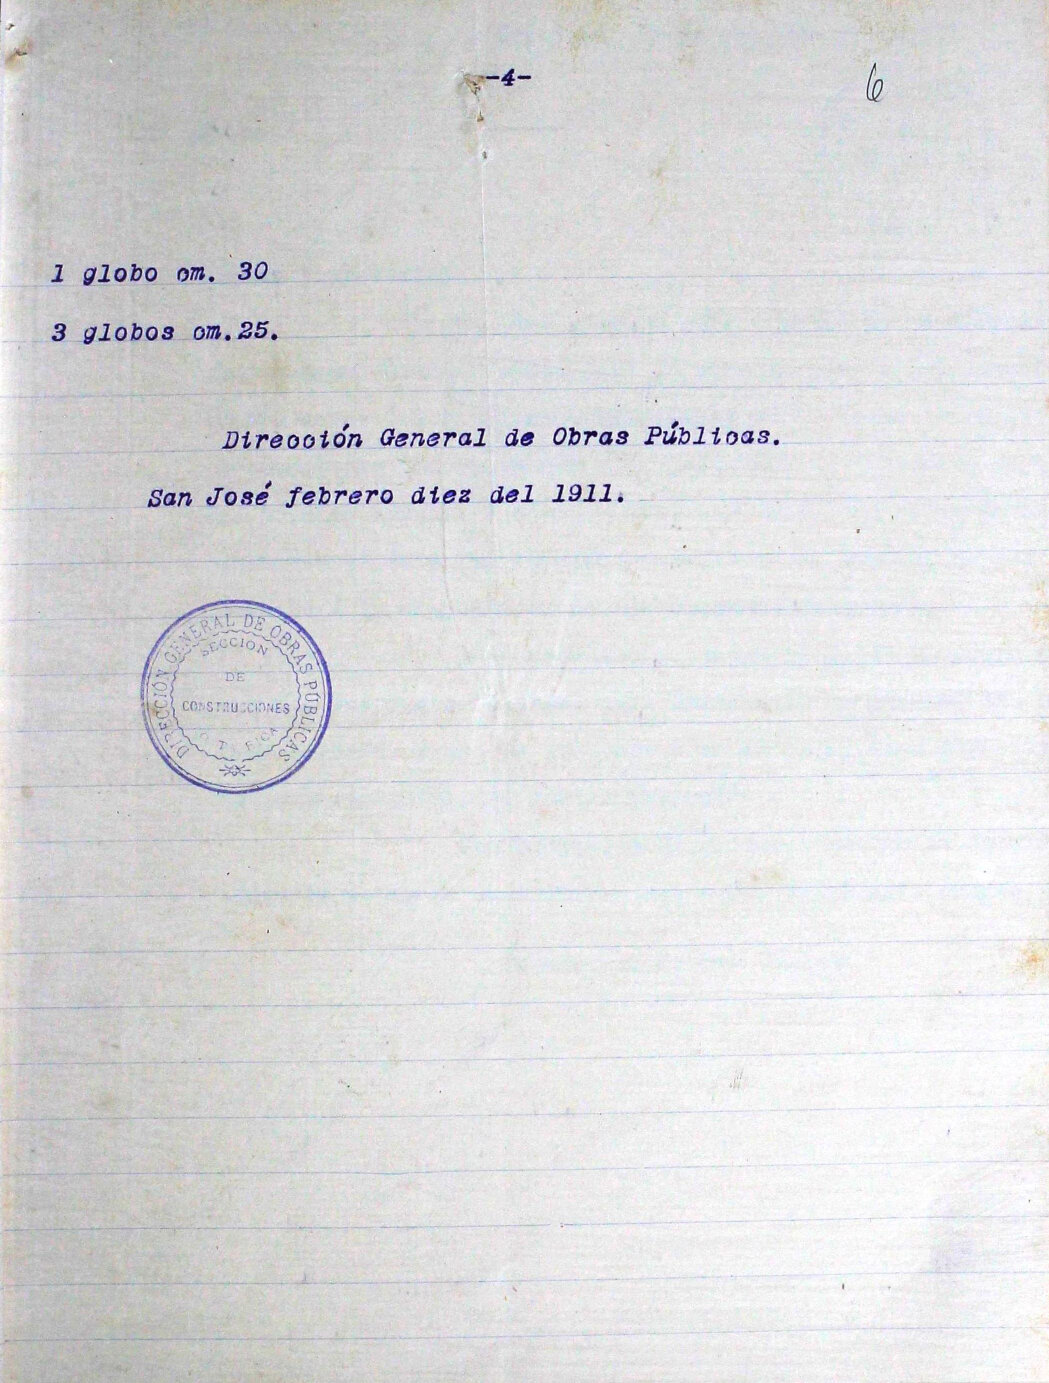 -4-
6
1 globo cm. 30
3 globos cm.25.
Dirección General de Obras Públicas.
San José febrero diez del 1911.
DIRECCIÓN GENERAL DE OBRAS PÚBLICAS
SECCION
DE
CONSTRUCCIONES